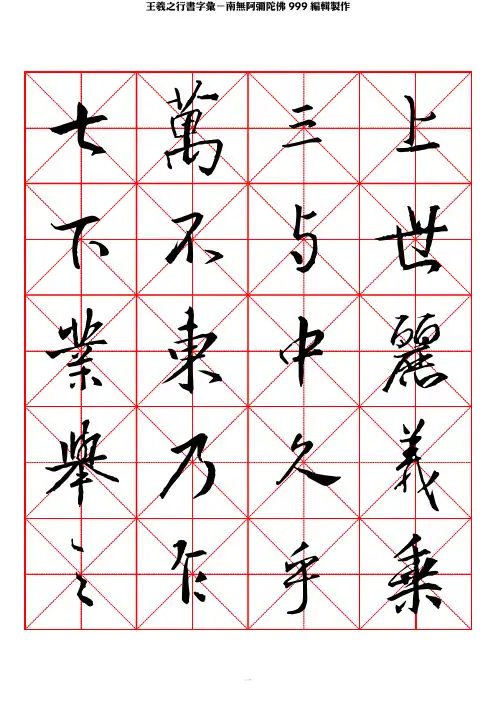 王羲之行書字彙－南無阿彌陀佛 999 編輯製作
七萬三上
下不与世
業東中麗
舉乃久義
之乍乎乘
一